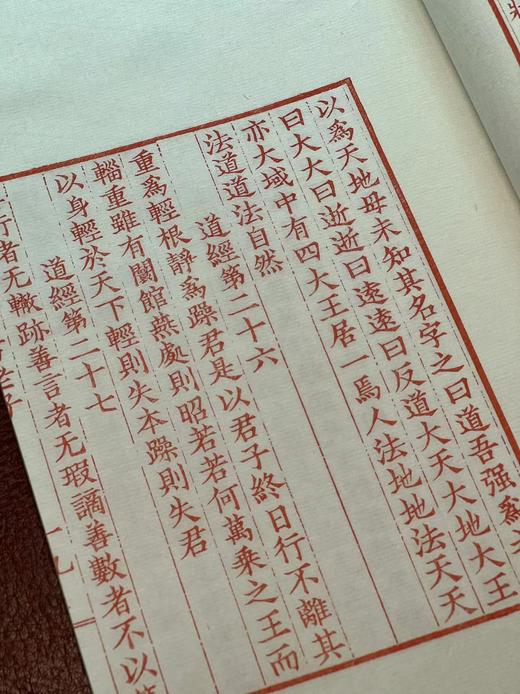 以爲天地母未知其名字之曰道吾强爲
曰大大曰逝逝曰遠遠曰反道大天大地大王
亦大域中有四大王居一焉人法地地法天天
法道道法自然
道經第二十六
重爲輕根靜爲躁君是以君子終日行不離其
輜重雖有關館燕處則昭若若何萬乘之王而
以身輕於天下輕則失本躁則失君
道經第二十七
行者无轍跡善言者无瑕謫善數者不以
一九